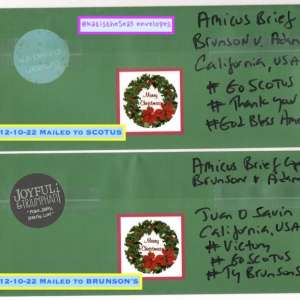 envelopes
Amicus Brief
Brunson v. Adam
California, USA
# GoSCOTUS
# Thank you
# God Bless Am
Merry
Christmas
12-10-22 Mailed to SCOTUS
JOYFUL
& TRIUMPHANT
Amicus Brief
Brunson v Adam
Juan O Savin
California, USA
# Victory
# GoSCOTUS
# Ty Brunsons
Merry
Christmas
12-10-22 Mailed to BRUNSON'S